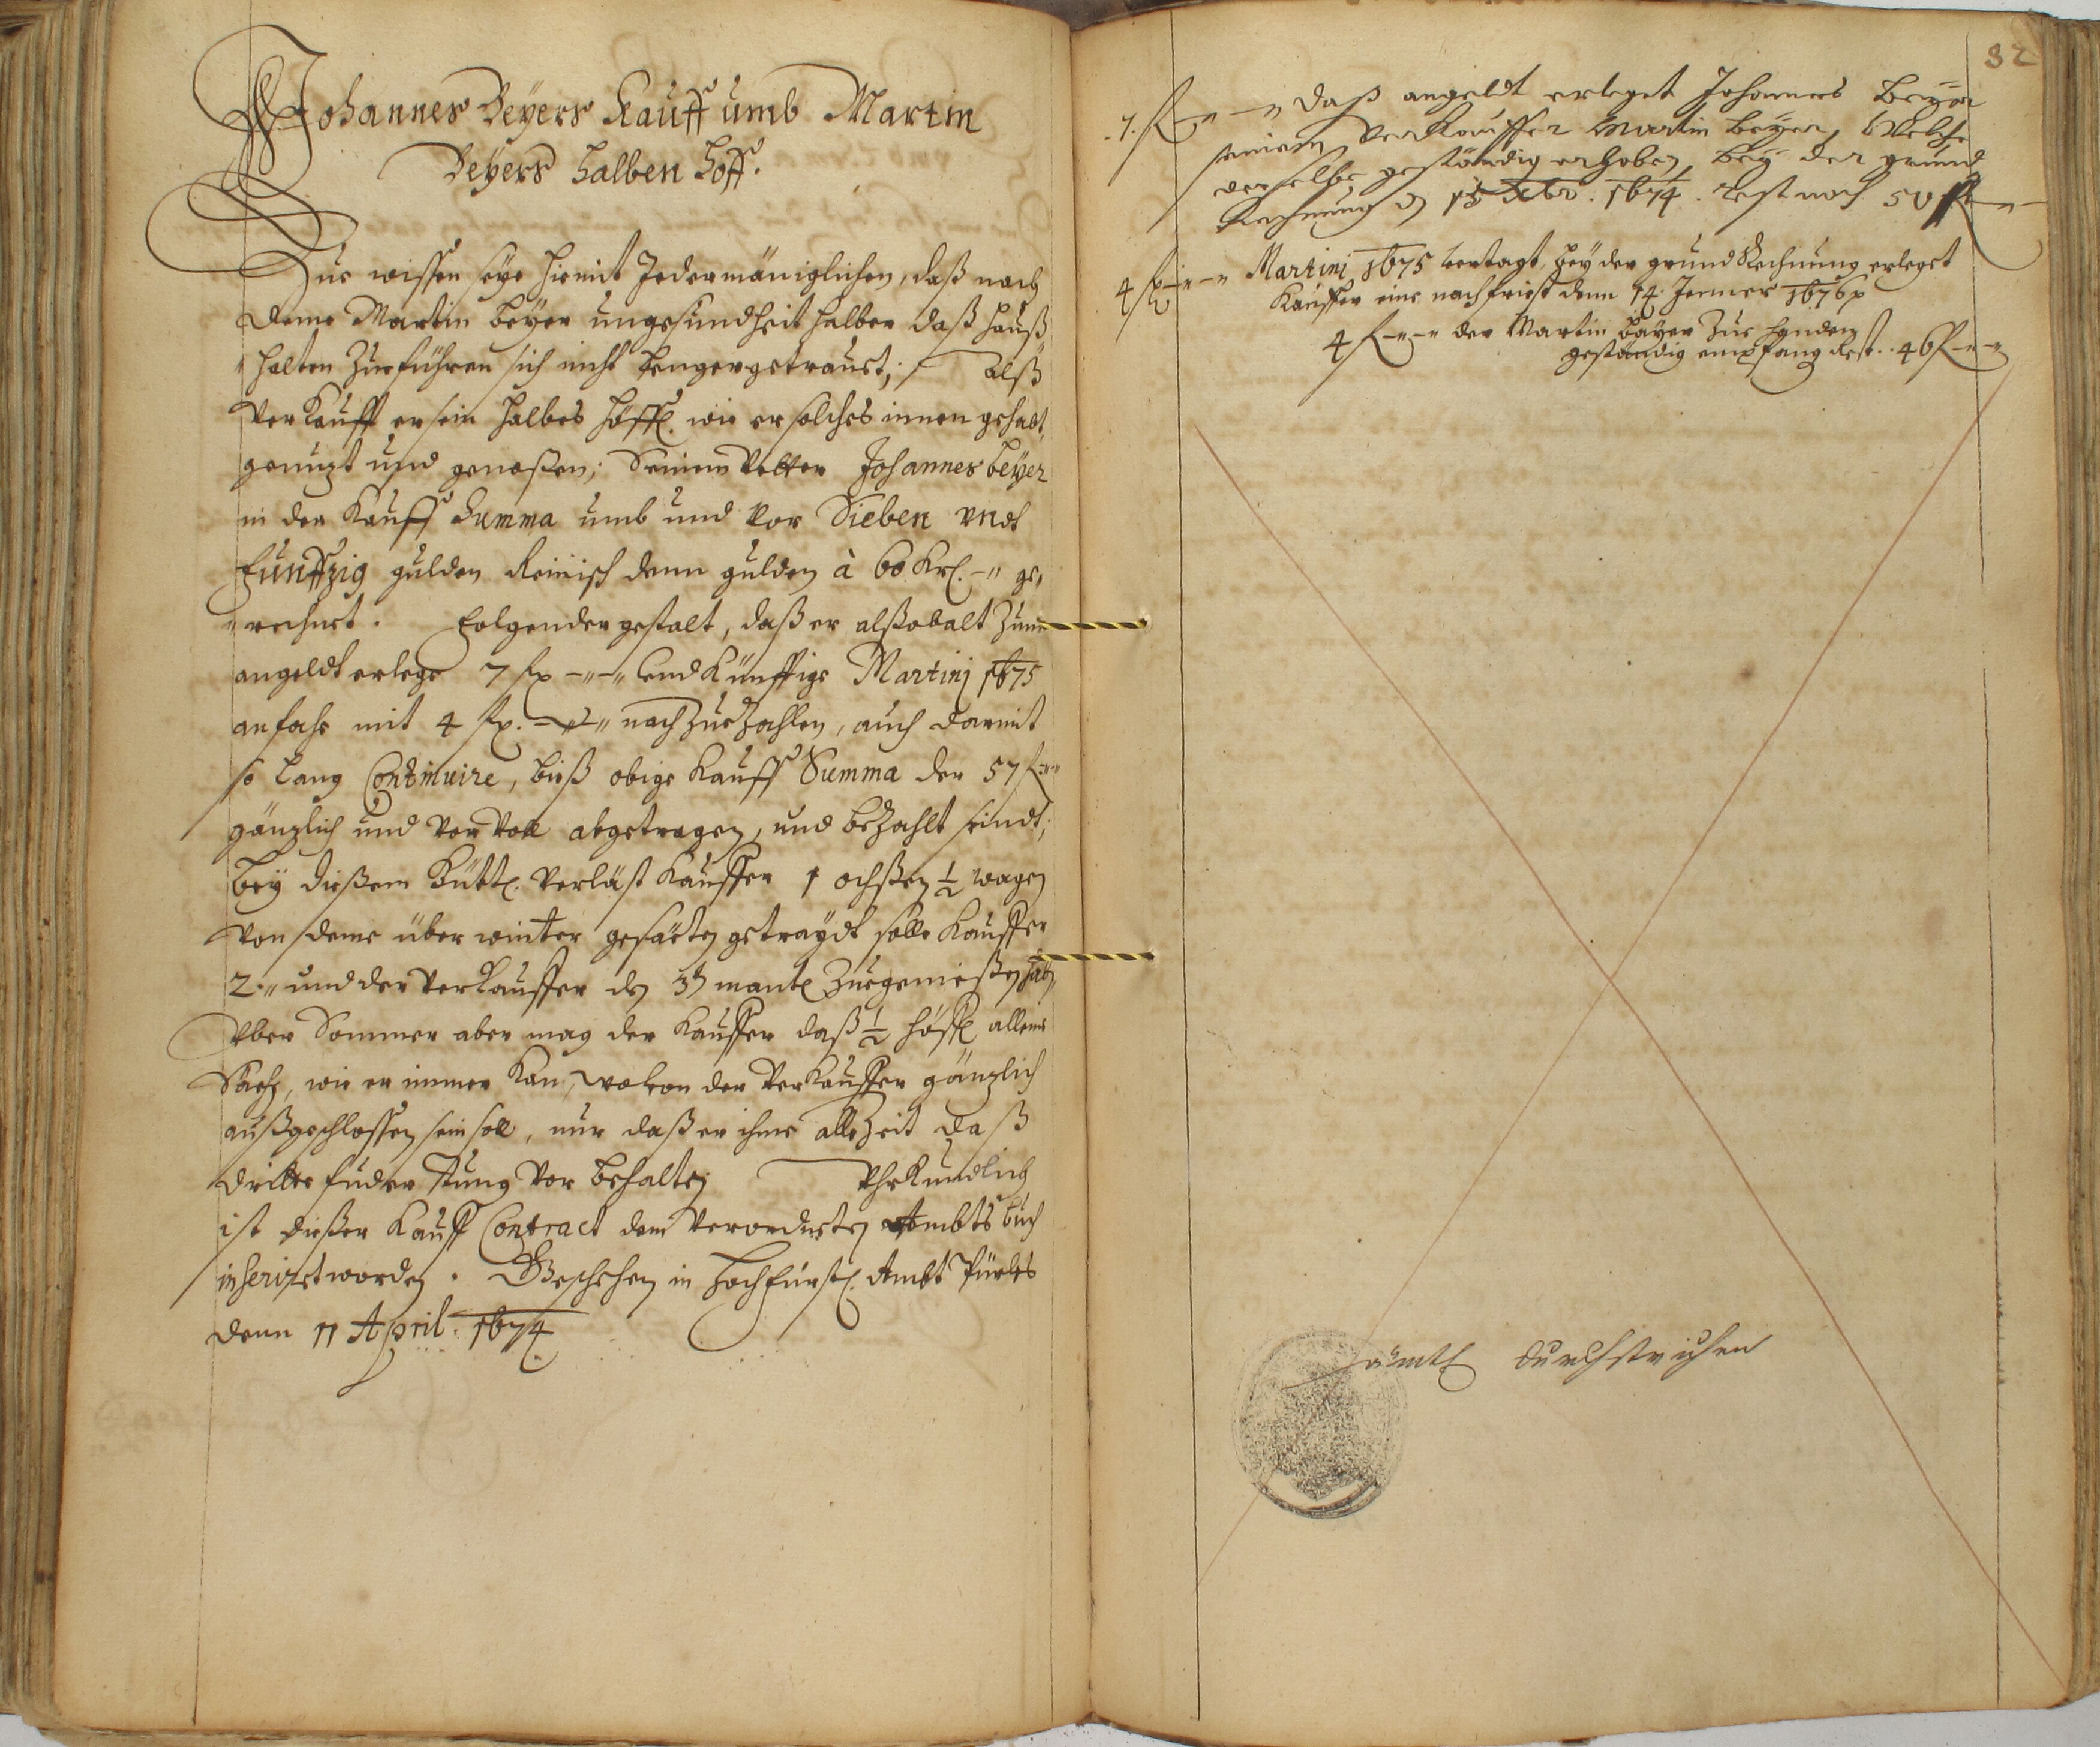 Johannes Beÿers Kauff umb Martin
Beÿers halben Hoff.
Zue wissen seÿe hiemit Jedermäniglichen, daß nach
deme Martin Beÿer ungesundheit halber daß hauß
halten Zueführen sich nicht lenger getraust, alß
verkaufft er sein halbes höffl. wie er solches innen gehabt,
genuzt und genoßen; Seinem Vetter Johannes Beÿer
in der Kauff Summa umb und vor Sieben vndt
Fünffzig gulden Reinisch denn gulden à 60 Kr. ge,
rechnet. Folgender gestalt, daß er alßobalt Zum
angeldt erlege 7 fl. – – und Künfftige Martinj 1675
anfahe mit 4 fl. – – nach Zue Zahlen, auch darmit
so lang Continuire, biß obige Kauff Summa der 57 f. – –
gänzlich und vor voll abgetragen, und beZahlt seindt;
beÿ dießem Güttl. verläst Kauffer 1 ochßen ½ wagen
von deme über winter gesäeten getraÿdt solle Kauffer
2. und der verkauffer den 3t mantl Zuegenießen hab,
Vber Sommer aber mag der Kauffer daß ½ höffl allein
Säeh, wie er immer Kan, wovon der verkauffer gänzlich
außgeschlossen sein soll, nur daß er ihme alleZeit daß
dritte fuder tung vor behalten Vhrkundlich
ist dießer Kauff Contract dem verordneten Ambts buch
inserirt worden. Geschehen in Hochfürstl. Ambt Pürles
denn 11 April. 1674
32
7. fl – – daß angeldt erleget Johannes Beÿer
seinem verkauffer Martin Beÿer, Welche
derselbe geständig erhoben, beÿ der grund
Rechnung d 15 Xbr. 1674. Rest noch 50 fl – –
4 fl – – Martini 1675 vertagt, beÿ der grund Rechnung erleget
Kauffer eine nachfrist denn 14. Jenner 1676
4 f – – der Martin Baÿer Zue handen
geständig empfang Rest.. 46 f – –
sämtl durchstrichen